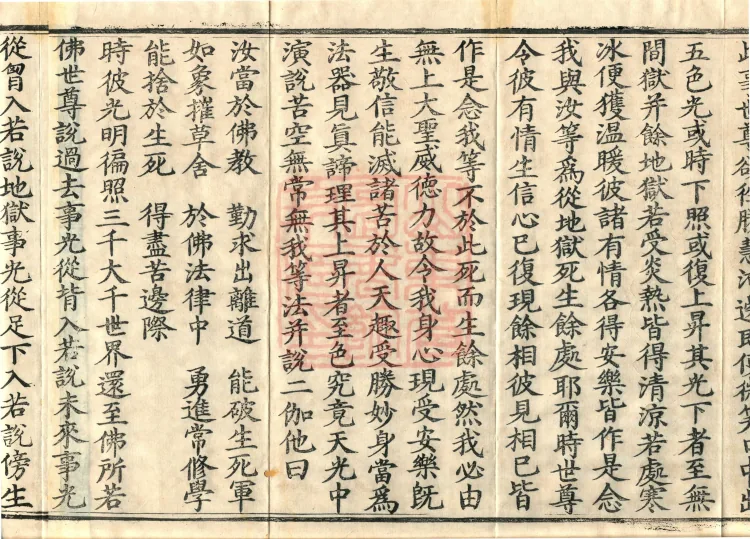 五色光或時下照或復上昇其光下者至無
間獄并餘地獄若受炎熱皆得清凉若處寒
冰便獲温暖彼諸有情各得安樂皆作是念
我與汝等爲從地獄死生餘處耶爾時世尊
令彼有情生信心已復現餘相彼見相已皆
作是念我等不於此死而生餘處然我必由
無上大聖威德力故令我身心現受安樂旣
生敬信能滅諸苦於人天趣受勝妙身當爲
法器見眞諦理其上昇者至色究竟天光中
演說苦空無常無我等法并說二伽他曰
汝當於佛教　勤求出離道　能破生死軍
如象摧草舍　於佛法律中　勇進常修學
能捨於生死　得盡苦邊際
時彼光明徧照三千大千世界還至佛所若
佛世尊說過去事光從背入若說未來事光
從胷入若說地獄事光從足下入若說傍生